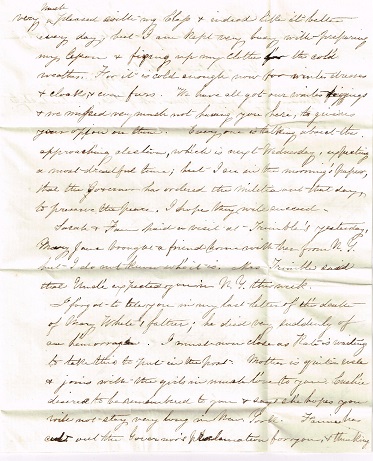 most
very pleased with my Class & indeed like it better
every day; but I am kept very busy with preparing
my lesson & fixing up my clothes for the cold
weather. For it is cold enough now for winter dresses
& cloaks & even furs. We have all got our winter
& we missed very much not having you here, to give us
your opinion on them. Every one is talking about the
approaching election, which is next Wednesday, expecting
a most dreadful time; but I see in the morning's papers,
that the Governor has ordered the militia out that day,
to preserve the peace, I hope they will succeed.
Sarah & Fan paid a visit at Trimble's yesterday,
Mary Jane brought a friend home with her from N.Y.
but I do not know who it is. Mrs Trimble said
that Uncle expected you in N.Y. this week.
I forgot to tell you in my last letter of the death
of Henry White's father; he died very suddenly of
an hemorrage. I must now close as Kate is waiting
to take this to put in the post. Mother is quite well
& joins with the girls in much love to you
desires to be remembered to you & says she hopes you
will not stay very long in New York. Fannie has
cut out the Governor's Proclamation for you, & thinking